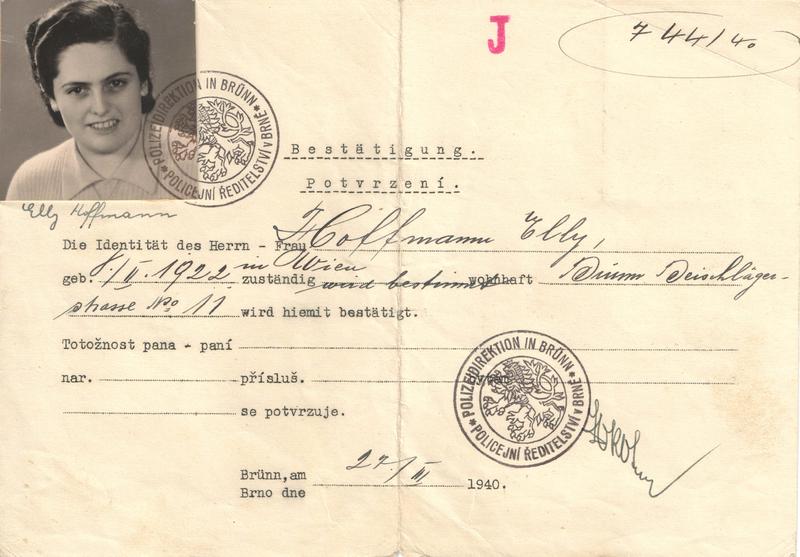 J
744/40
POLIZEIDIREKTION IN BRÜNN
POLICEJNÍ ŘEDITELSTVÍ v BRNĚ
Bestätigung.
Potvrzení.
Elly Hoffmann
Die Identität des Herrn - Frau Hoffmann Elly,
geb. 8./II. 1922 in Wien zuständig wird bestimmt wohnhaft Brünn Beischläger-
strasse No 11 wird hiemit bestätigt.
Totožnost pana - paní
nar. přísluš. bytem
se potvrzuje.
POLIZEIDIREKTION IN BRÜNN
POLICEJNÍ ŘEDITELSTVÍ v BRNĚ
Brünn, am 27./III 1940.
Brno dne